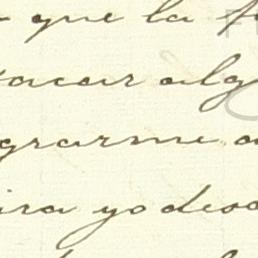 que la
sacar alg
grarme a
ira yo desea